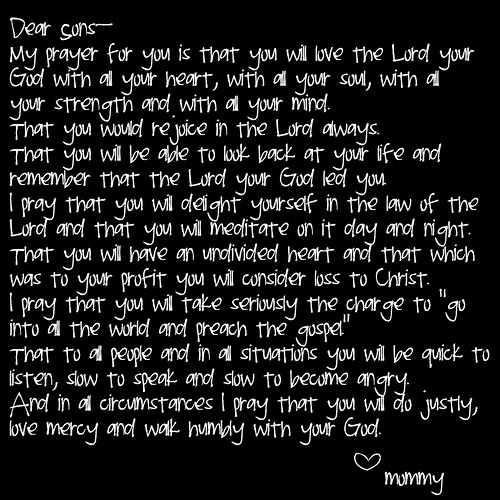 Dear sons—
My prayer for you is that you will love the Lord your
God with all your heart, with all your soul, with all
your strength and with all your mind.
That you would rejoice in the Lord always.
That you will be able to look back at your life and
remember that the Lord your God led you.
I pray that you will delight yourself in the law of the
Lord and that you will meditate on it day and night.
That you will have an undivided heart and that which
was to your profit you will consider loss to Christ.
I pray that you will take seriously the charge to "go
into all the world and preach the gospel"
That to all people and in all situations you will be quick to
listen, slow to speak and slow to become angry.
And in all circumstances I pray that you will do justly,
love mercy and walk humbly with your God.
♡ mommy